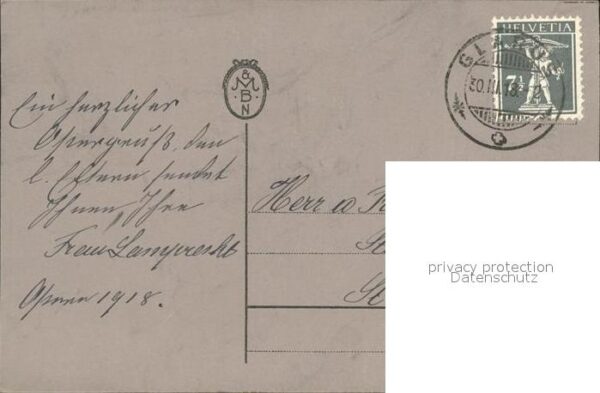 HELVETIA
7½
GLARUS
30.III.18
M & M
B
N
Ein herzlicher
Ostergruß, den
l. Eltern sendet
Ihnen, Ihre
Frau Lamprecht
Ostern 1918.
Herr u.
privacy protection
Datenschutz